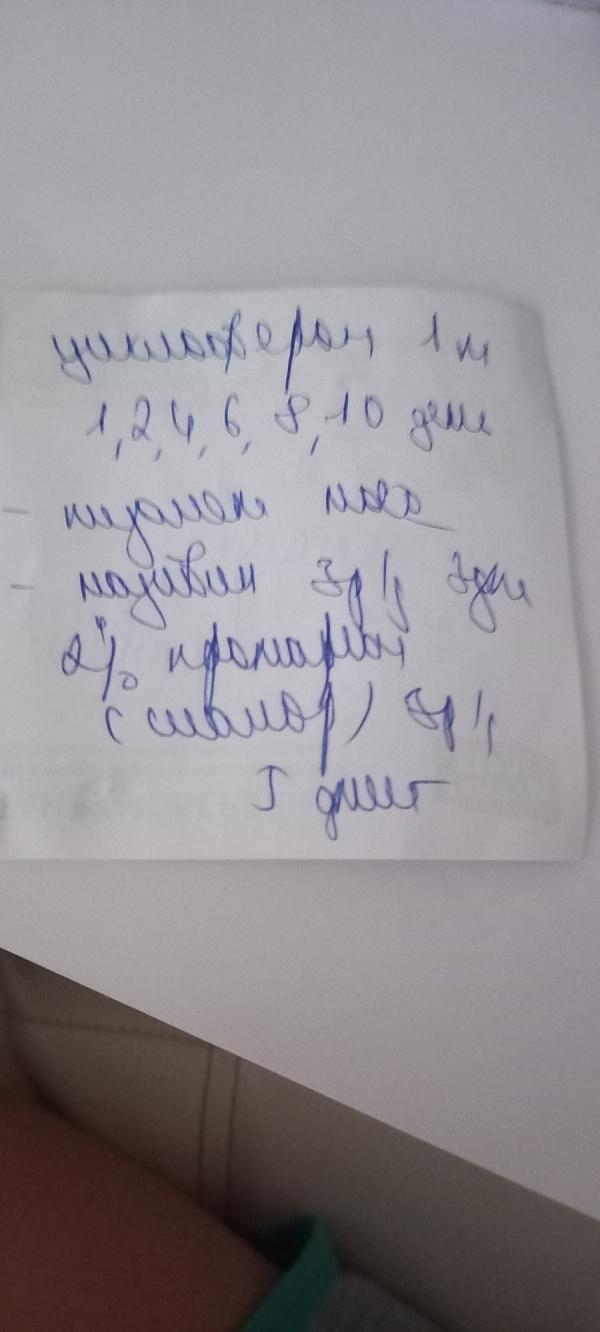 циклоферон 1 м
1, 2, 4, 6, 8, 10 день
- носа
- називин 3р/д 3 дн
2% протаргол
(сиалор) 3р/д
5 дней